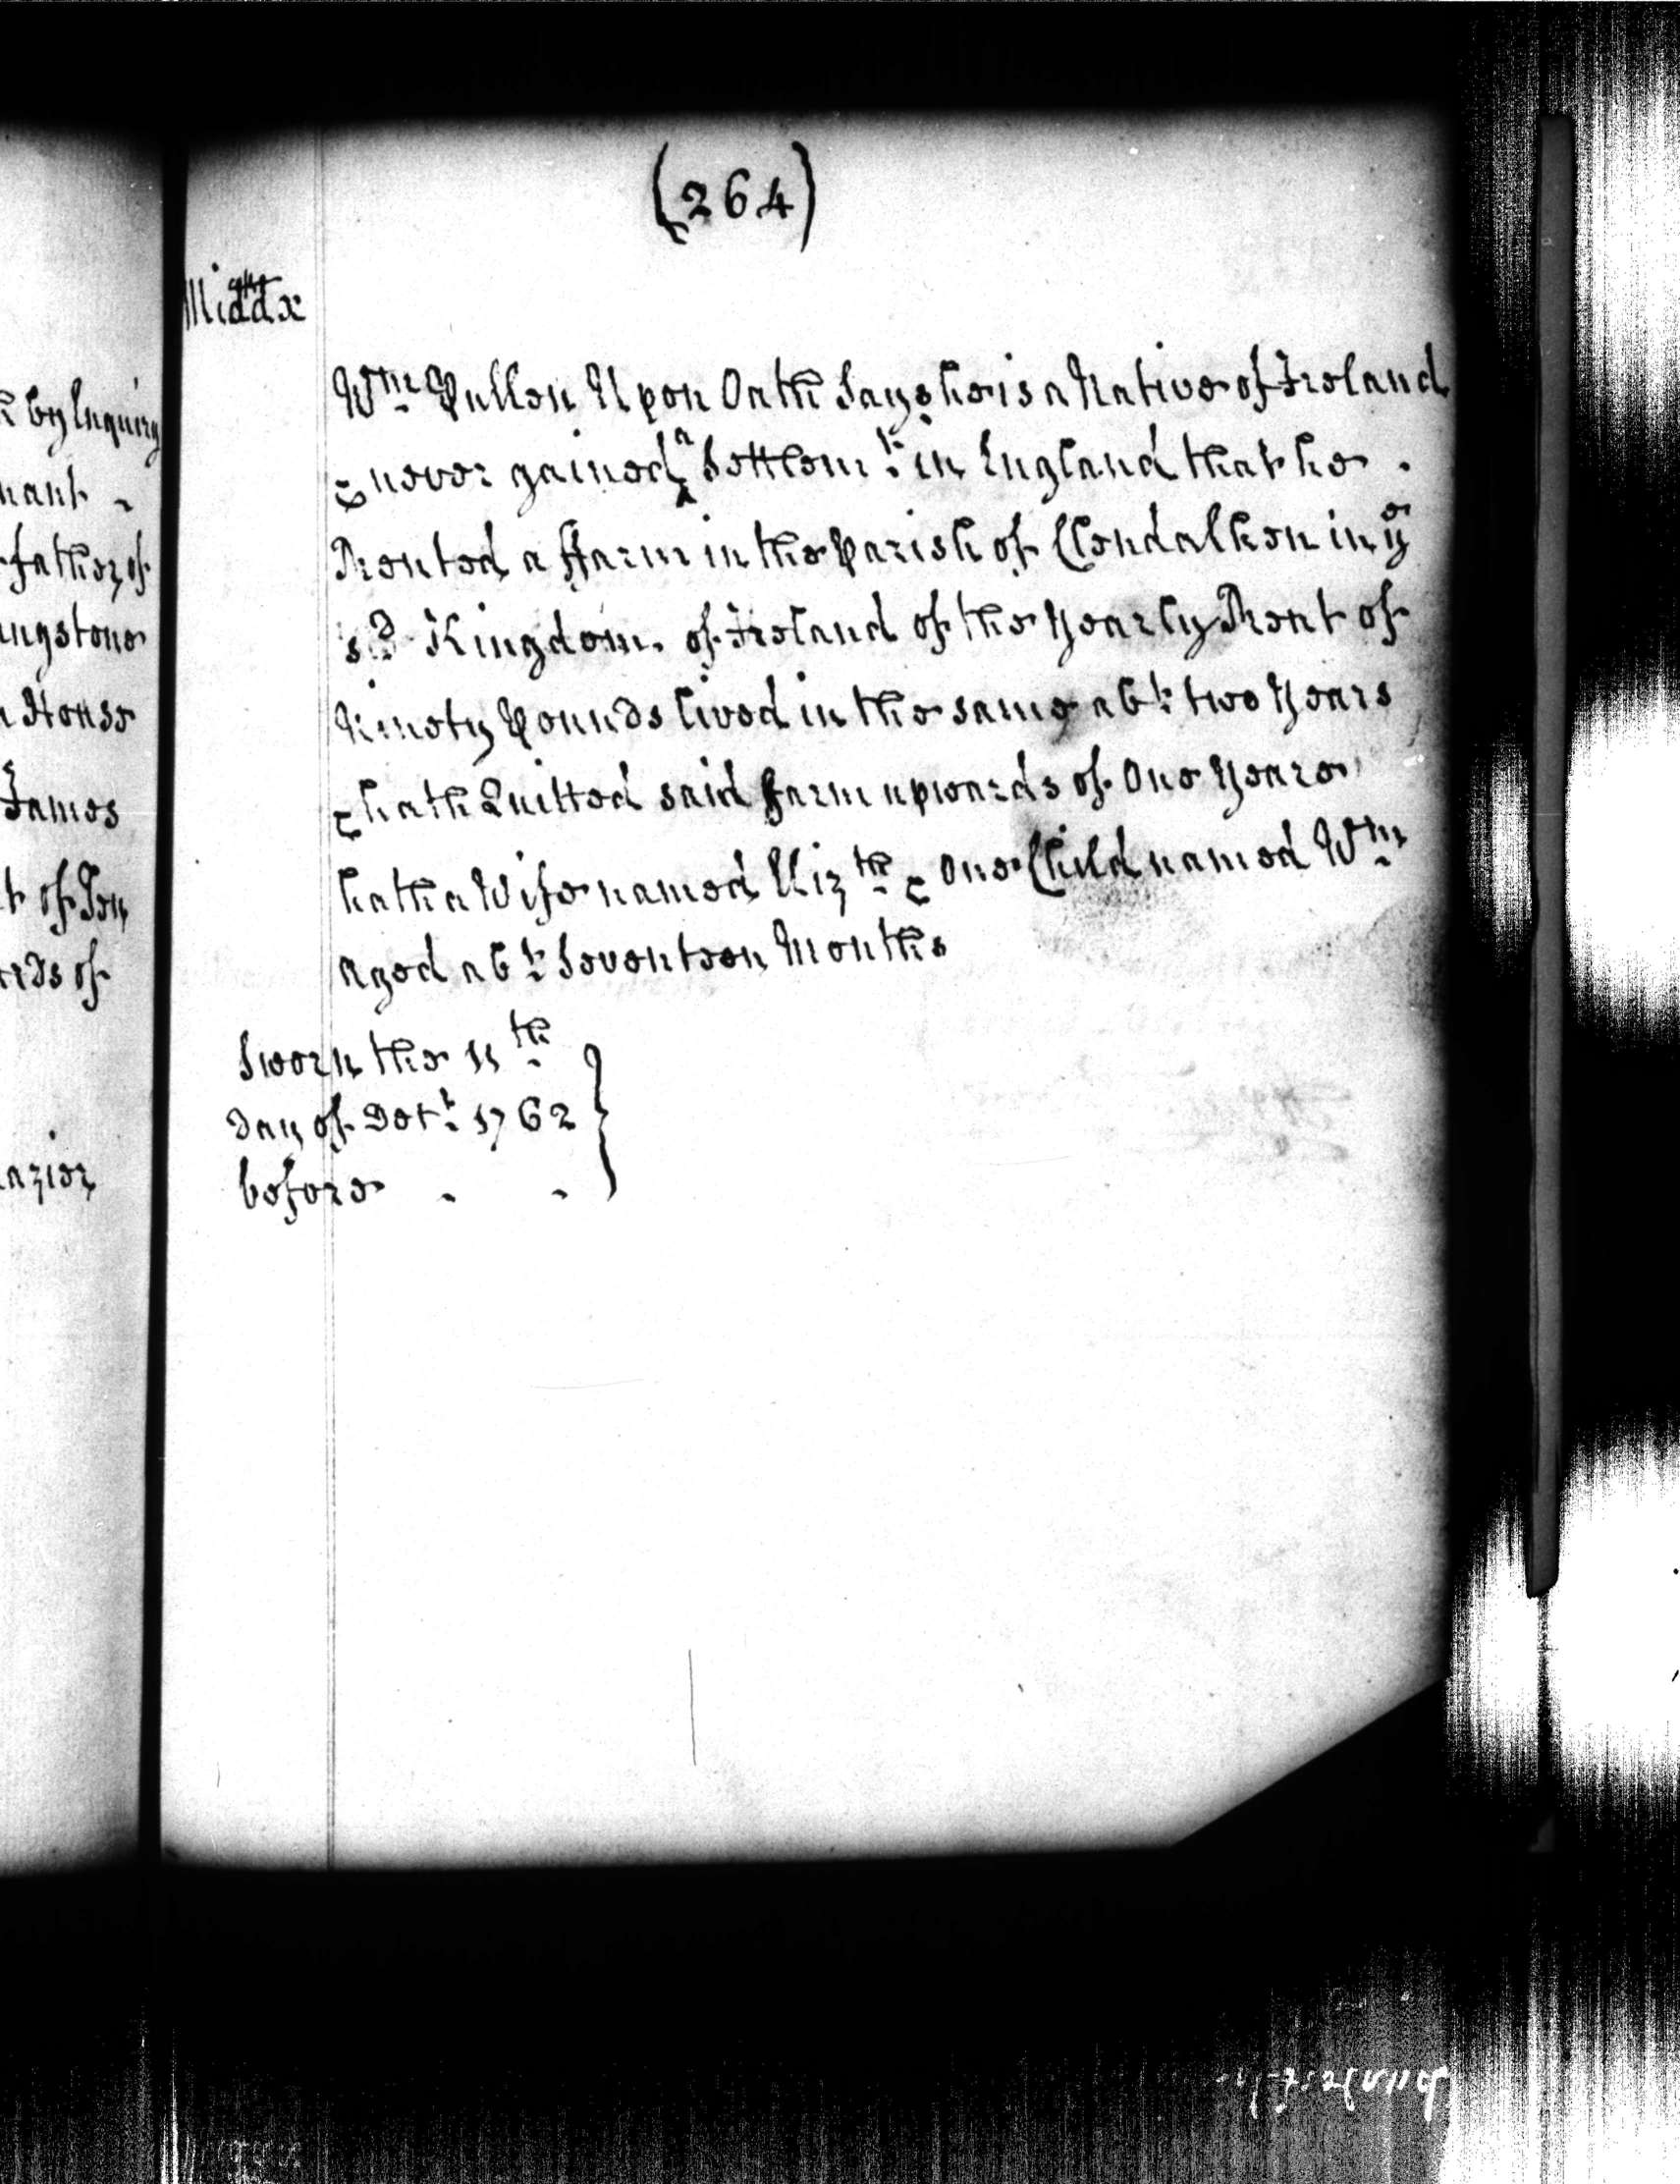 (264)
Middx
Wm Pullen Upon Oath Says he is a Native of Ireland
& never gained a Settlemt in England that he .
Rented a ffarm in the Parish of Clendalken in ye
sd Kingdom. of Ireland of the Yearly Rent of
Ninety Pounds lived in the same abt two Years
& hath Quitted said farm upwards of One Yeare
hath a Wife named Elizth & One Child named Wm
Aged abt Seventeen Months
Sworn the 11th
Day of Octr 1762
before . .
by Inquiry
father of
House
James
of
rds of